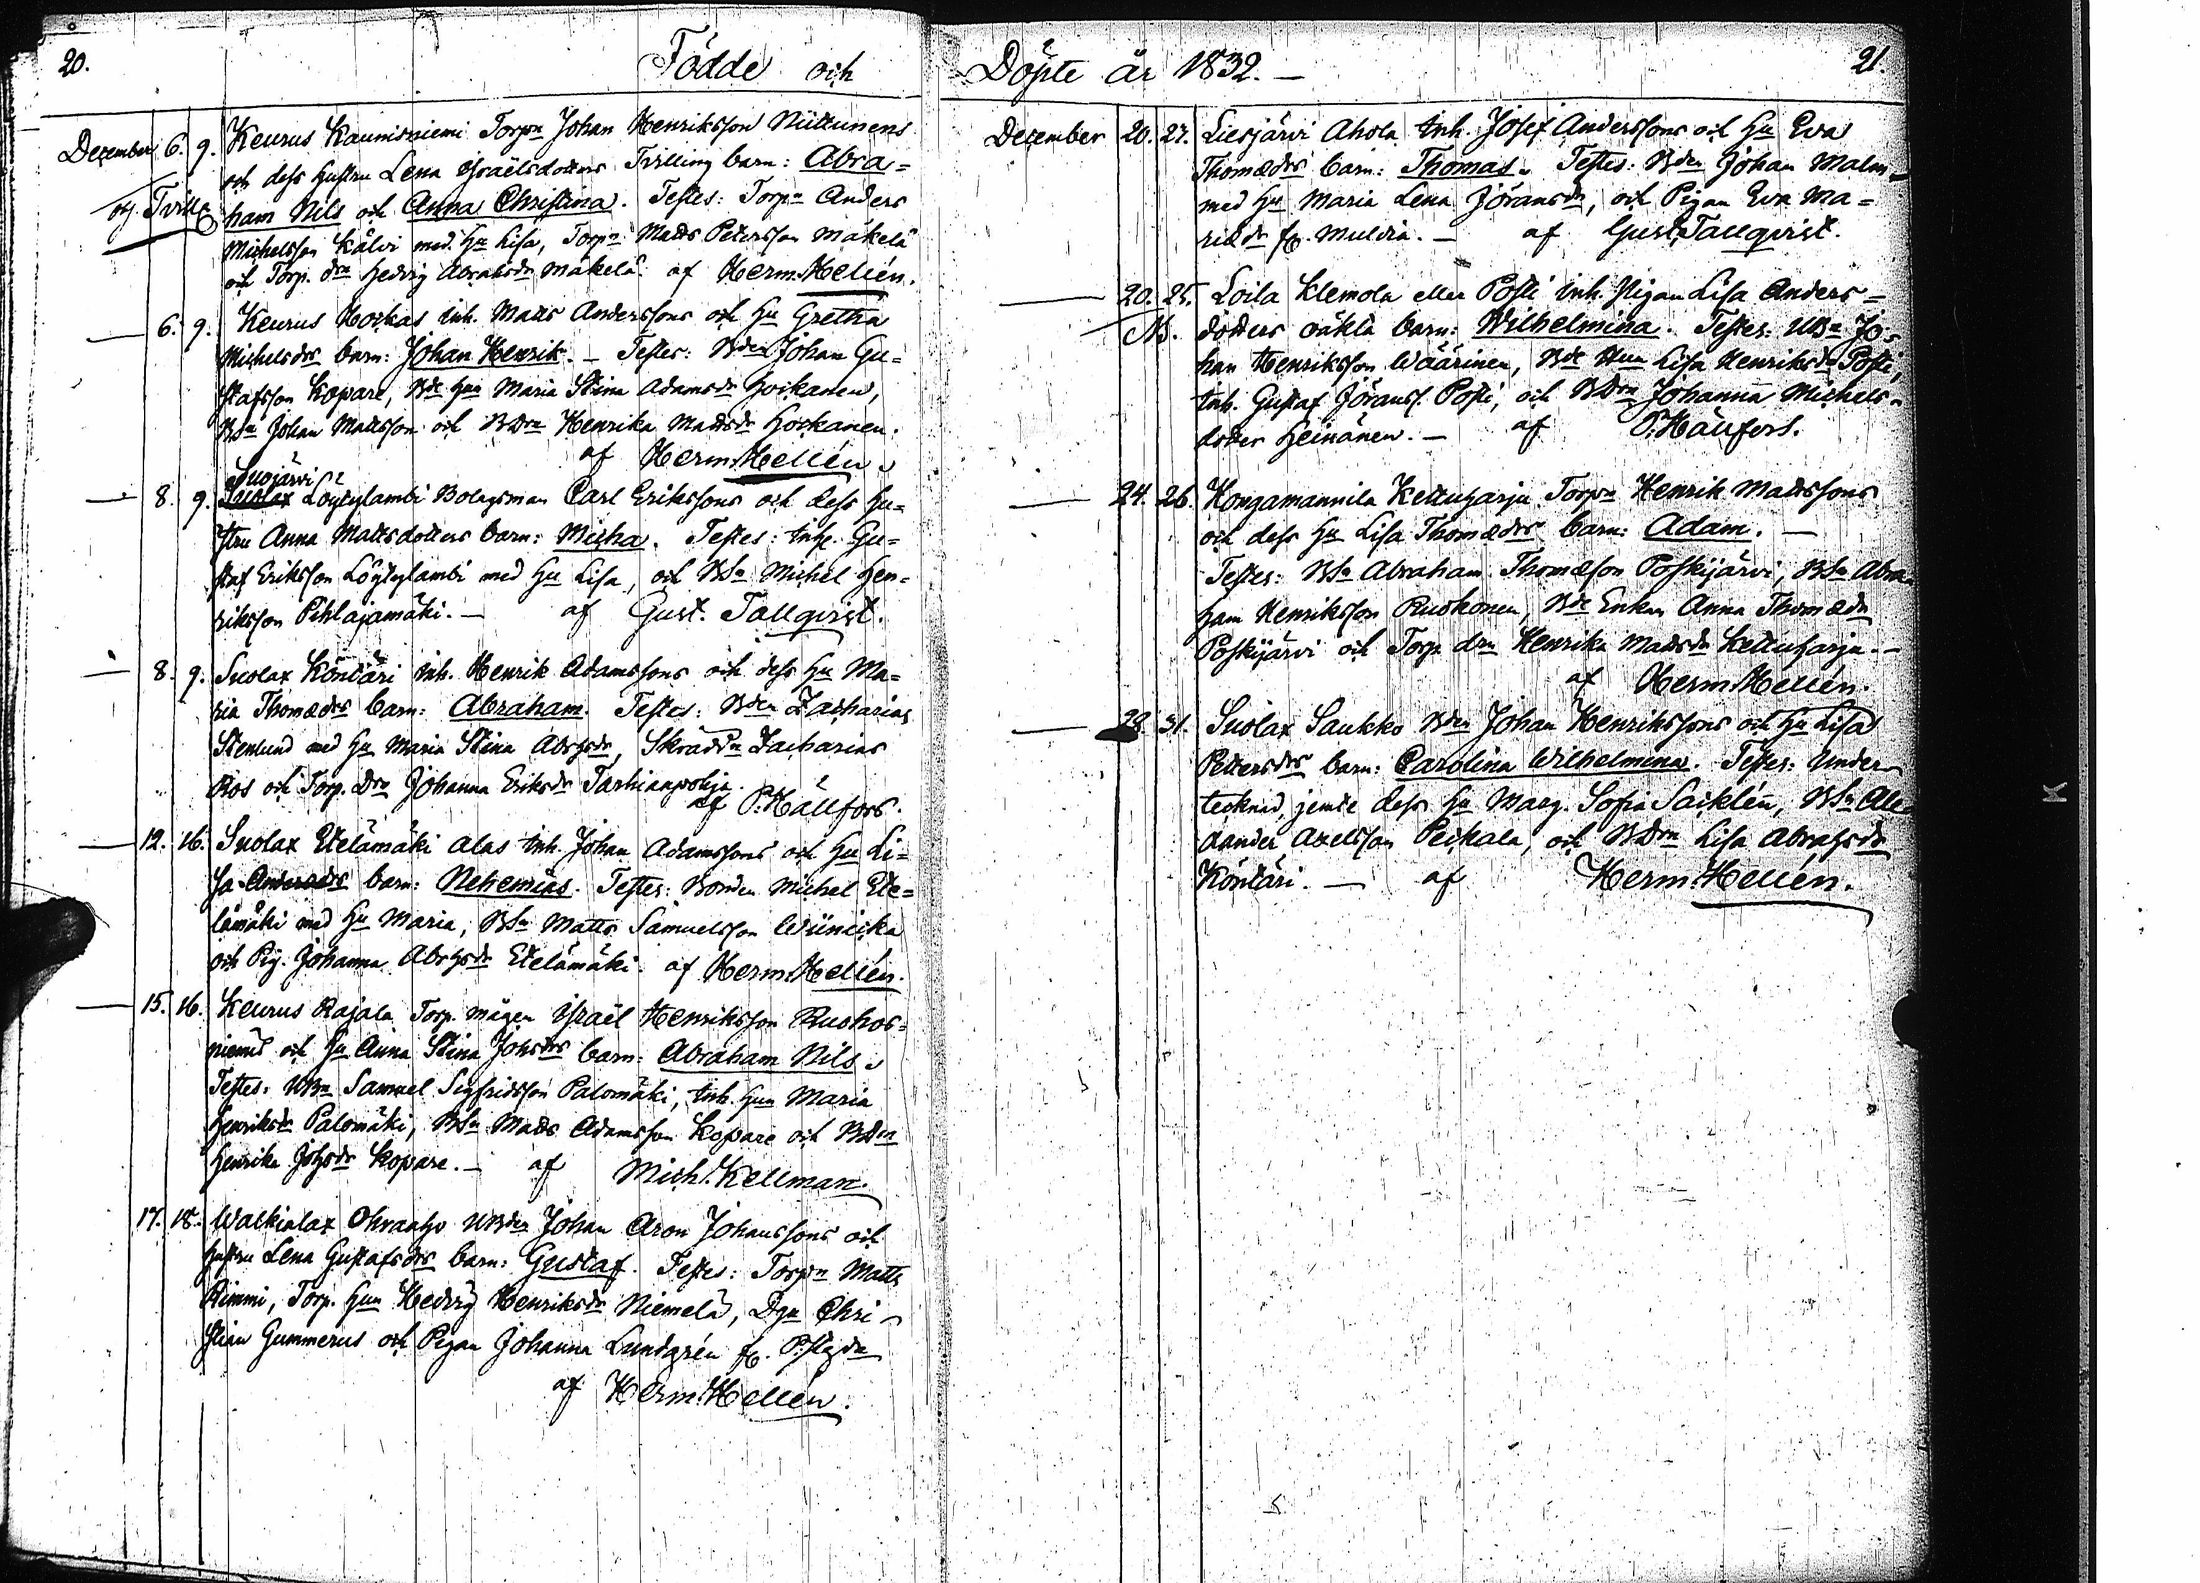 20.
Födde och
December 6. 9. Keurus Kaunisniemi Torpn Johan Henriksson Niittunens
och dess hustru Lena Israëlsdotters Tvilling barn: Abra=
ham Nils och Anna Christina. Testes: Torpn Anders
Michelsson Kälvi med Hu Lisa, Torpn Matts Petersson Mäkelä
och Torp. drn Hedvig Abrahsdr Mäkelä. af Herm. Hellén.
6. 9. Keurus Horkas Inh. Matts Anderssons och Hu Gretha
Michelsdrs barn: Johan Henrik. – Testes: Bden Johan Gu=
stafsson Kopare, Bde Hun Maria Stina Adamsdr Horkanen,
BSn Johan Mattsson och BDrn Henrika Mattsdr Horkanen.
af Herm. Hellén.
Suojärvi
8. 9. Suolax Löytylambi Bolagsman Carl Erikssons och dess Hu=
stru Anna Mattsdotters barn: Micha. Testes: Inh. Gu=
staf Eriksson Löytylambi med Hu Lisa, och BSn Michel Hen=
riksson Pihlajamäki. – af Gust. Tallqvist.
8. 9. Suolax Köntäri Inh. Henrik Adamssons och dess Hu Ma=
ria Thomædrs barn: Abraham. Testes: Bden Zacharias
Stenlund med Hu Maria Stina Abrhsdr, Skraddn Zacharias
Ros och Torp. Drn Johanna Eriksdr Tarhianpohja.
af P. Hällfors.
12. 16. Suolax Etelämäki alas Inh. Johan Adamssons och Hu Li=
sa Andersdrs barn: Nehemias. Testes: Bonden Michel Ete=
lämäki med Hu Maria, BSn Matts Samuelsson Wiinikka
och Pig. Johanna Abrhsdr Etelämäki. af Herm. Hellén.
15. 16. Keurus Rajala Torp. mågen Israël Henriksson Ruohos=
niemis och Hu Anna Stina Johsdrs barn: Abraham Nils.
Testes: UBn Samuel Sigfridsson Palomäki, Inh. Hun Maria
Henriksdr Palomäki, BSn Matts Adamsson Kopare och BDrn
Henrika Johsdr Kopare. – af Mich. Kellman.
17. 18. Walkialax Ohraaho UBden Johan Aron Johanssons och
hustru Lena Gustafsdrs barn: Gustaf. Testes: Torpn Matts
Rimmi, Torp. Hun Hedvig Henriksdr Niemelä, Dgn Chri=
stian Gummerus och Pigan Johanna Lundgrén fr.
af Herm. Hellén.
Döpte år 1832. –
21.
December 20. 27. Liesjärvi Ahola Inh. Josef Anderssons och Hu Eva
Thomædrs barn: Thomas. Testes: Bden Johan Malm
med Hu Maria Lena Jöransdr, och Pigan Eva Ma=
riædr fr. Muldia. – af Gust. Tallqvist.
20. 25. Loila Klemola eller Posti Inh. Pigan Lisa Anders=
NB. dotters oäkta barn: Wilhelmina. Testes: UBn Jo=
han Henriksson Wäärinen, Bde Hun Lisa Henriksdr Posti,
Inh. Gustaf Jöranss. Posti, och BDrn Johanna Michels=
dotter Heinänen. – af P. Hällfors.
24. 26. Hongamannila Kettuharju Torpn Henrik Mattssons
och dess Hu Lisa Thomædrs barn: Adam. –
Testes: BSn Abraham Thomæson Poskijärvi, BSn Abra=
ham Henriksson Ruokonen, Bde Enkan Anna Thomædr
Poskijärvi och Torp. drn Henrika Mattsdr Kettuharju. –
af Herm. Hellén.
28. 31. Suolax Saukko Bden Johan Henrikssons och Hu Lisa
Pettersdrs barn: Carolina Wilhelmina. Testes: Under=
tecknad, jemte dess Hu Marg. Sofia Sacklén, BSn Ale=
xander Axelsson Peckala, och BDrn Lisa Abrahsdr
Köntäri. – af Herm. Hellén.
K